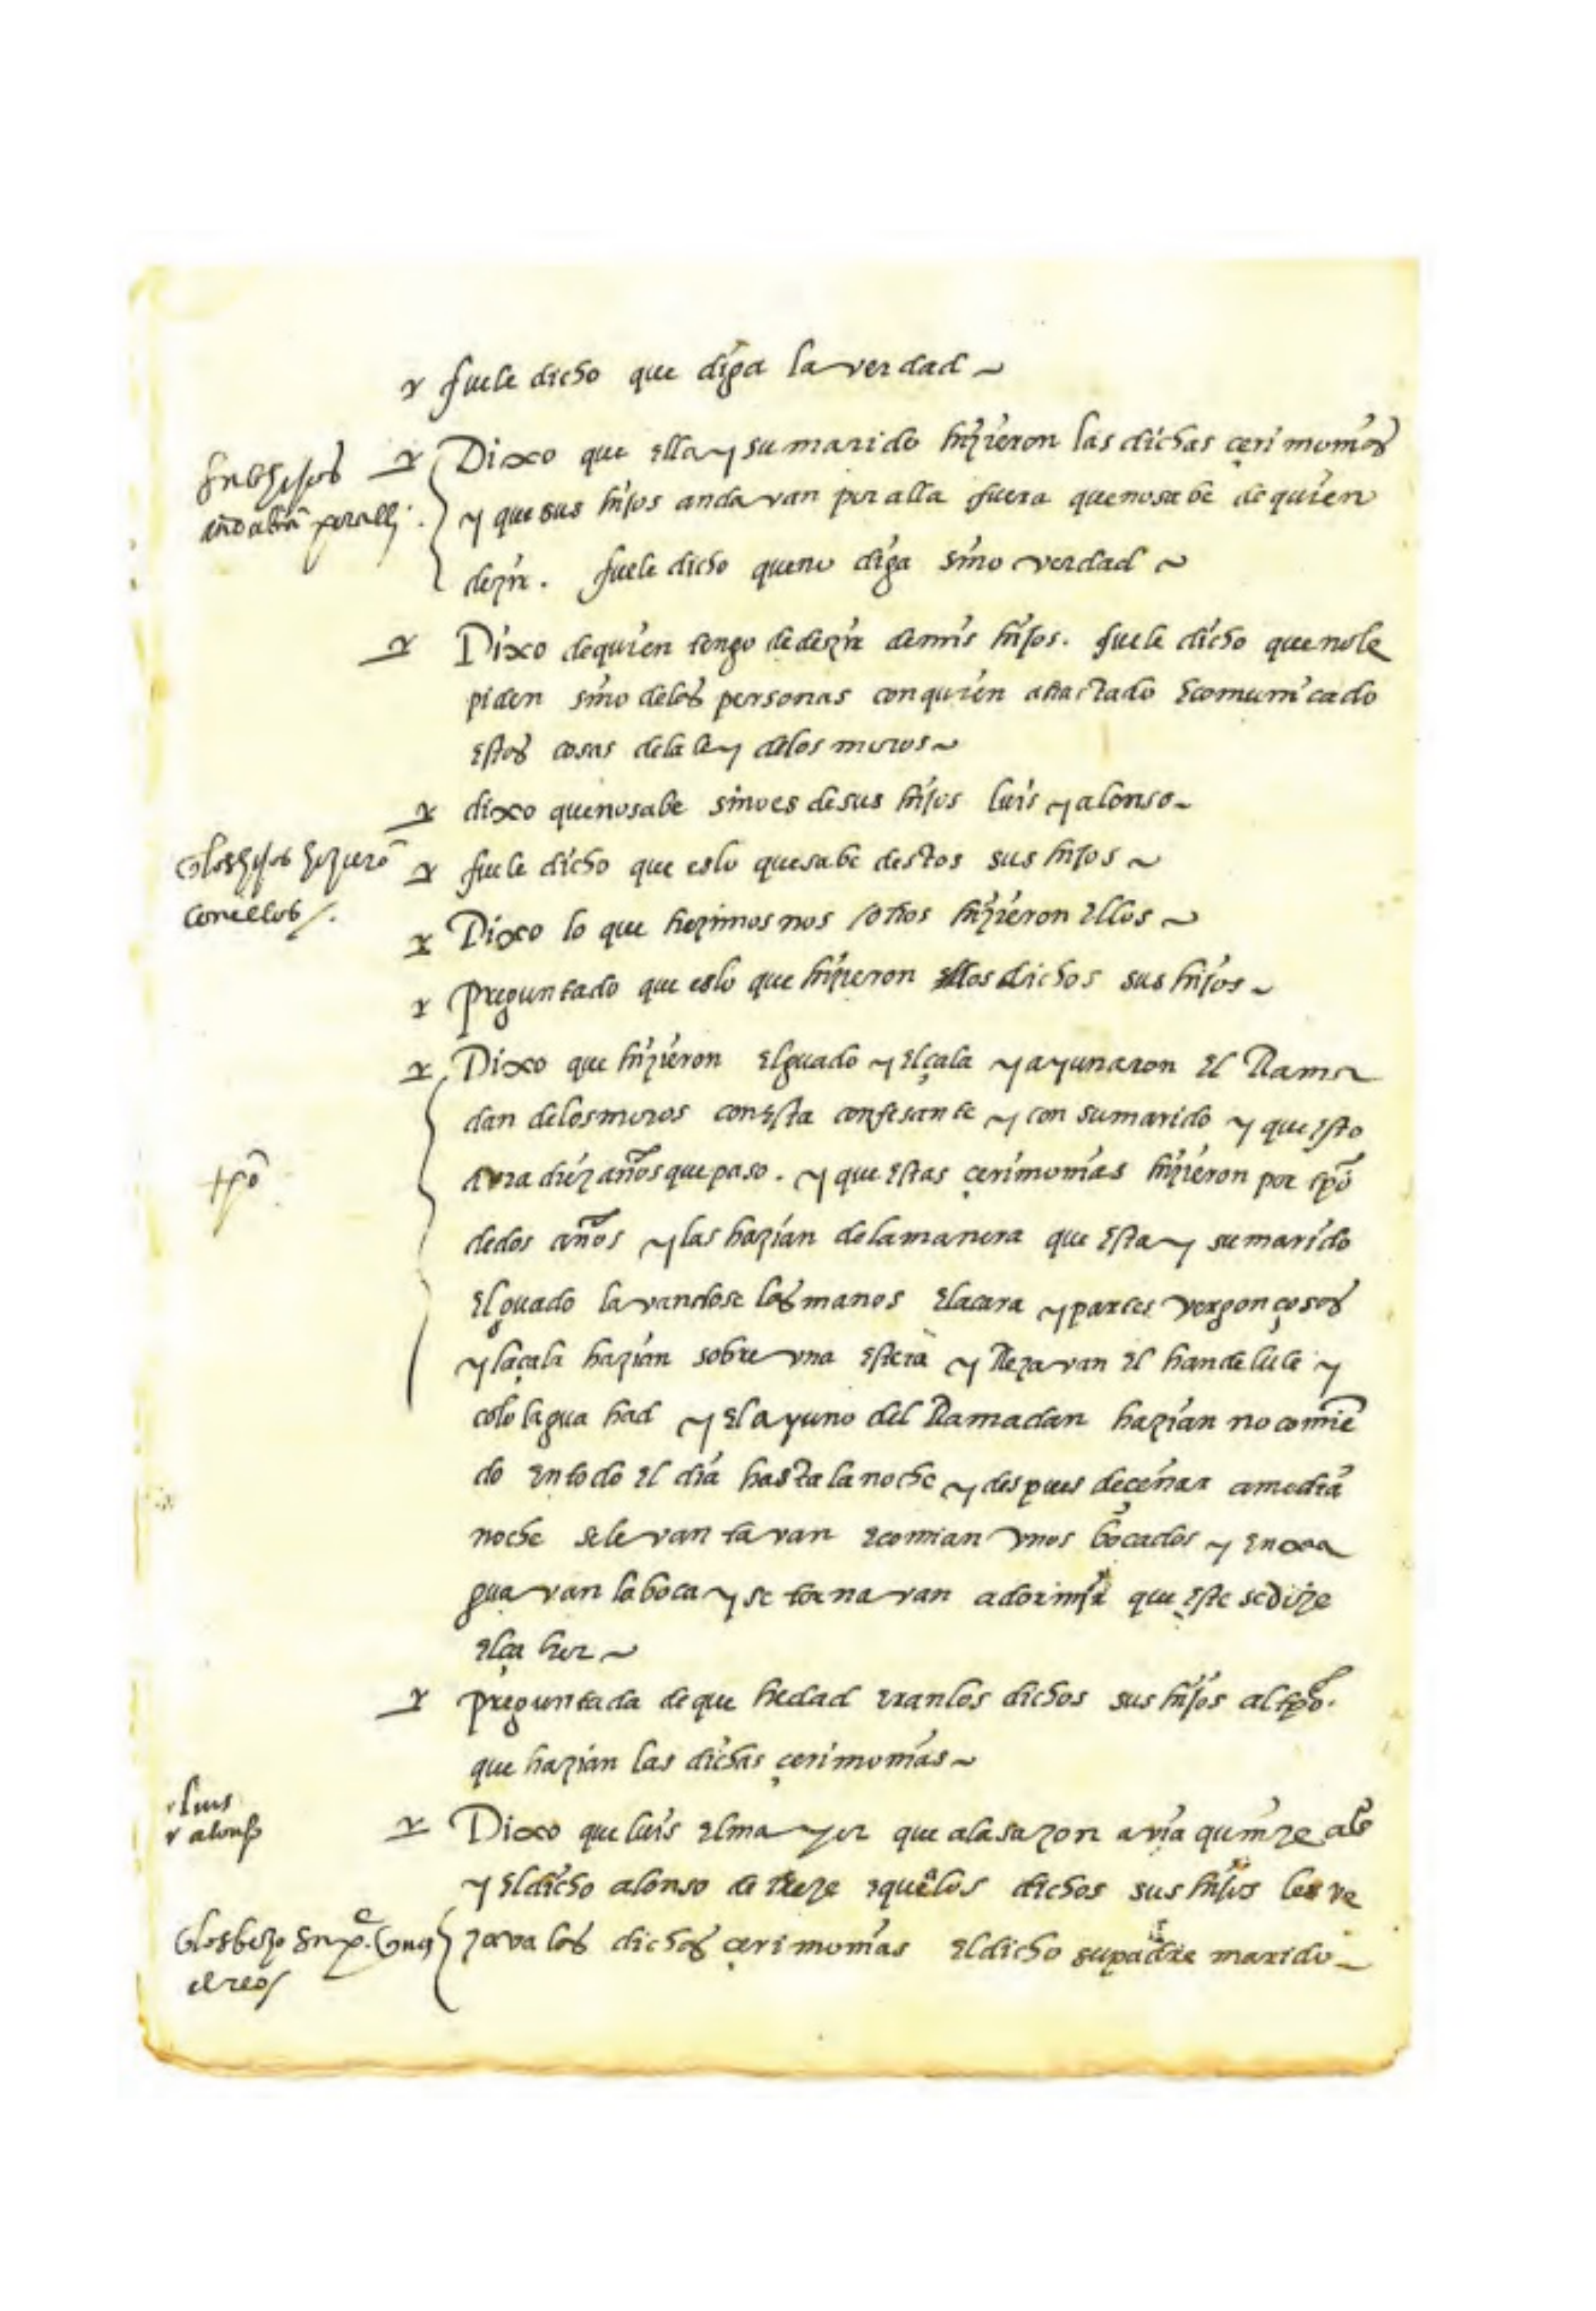 fuele dicho que diga la verdad ~
Dixo que ella y su marido hizieron las dichas çerimonias
y que sus hijos andavan por alla fuera que no sabe de quien
dezir. fuele dicho que no diga sino verdad ~
Dixo de quien tengo de dezir de mis hijos. fuele dicho que no le
piden sino de las personas con quien a tractado e comunicado
estas cosas de la ley de los moros ~
dixo que no sabe sino es de sus hijos luis y alonso ~
los hijos hizierõ
con ellos /.
fuele dicho que es lo que sabe destos sus hijos ~
Dixo lo que hezimos nosotros hizieron ellos ~
Preguntado que es lo que hizieron los dichos sus hijos ~
Dixo que hizieron el guado y el çala y ayunaron el Rama
dan de los moros con esta confesante y con su marido y que esto
avra diez años que paso. y que estas çerimonias hizieron por tpõ
tpõ
de dos años y las hazian de la manera que esta y su marido
el guado lavandose las manos e la cara y partes vergonçosas
y la çala hazian sobre una estera y Rezavan el handelule y
colo lagua had y el ayuno del Ramadan hazian no comiẽ
do en todo el dia hasta la noche y despues de çenar a media
noche se levantavan e comian unos bocados y enxa
guavan la boca y se tornavan a dormir que este se dize
el çahor ~
preguntada de que hedad eran los dichos sus hijos al tpõ.
que hazian las dichas çerimonias ~
luis
y alonso
Dixo que luis el mayor que a la sazon avia quinze años
y el dicho alonso de treze e que a los dichos sus hijos les ve
zava las dichas çerimonias el dicho su padre marido